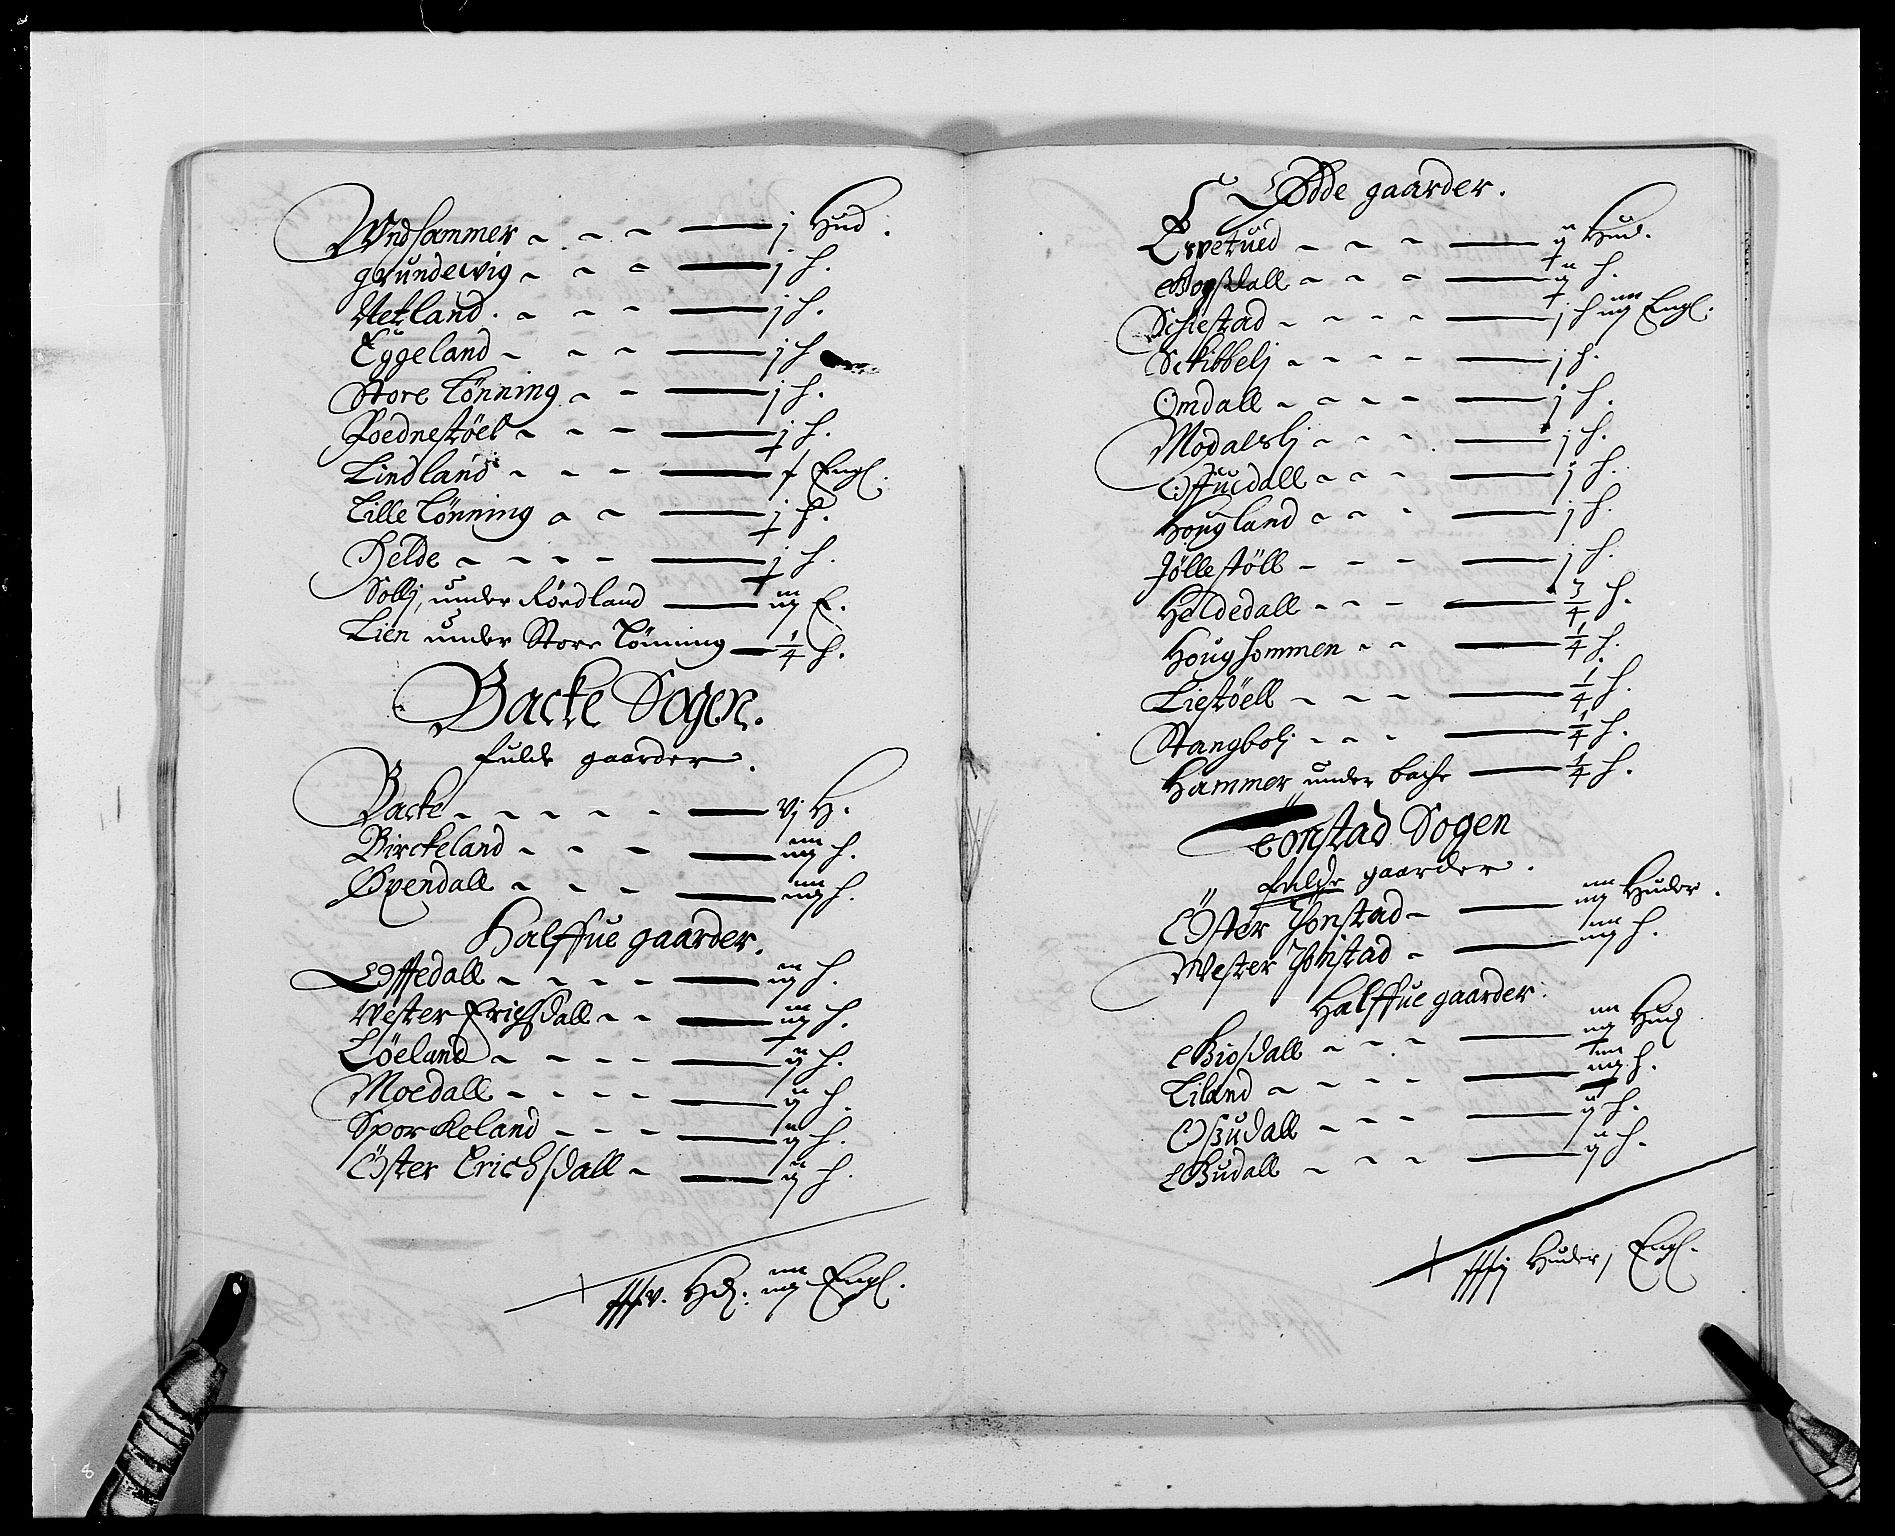 Wndsammer - - - j Hud:
grundewig - - - j h.
Netland. - - - j h.
Eggeland - - - j h
Store Tönning - - j h.
Roednestöel - - - j h.
Lindland - - - Engl:
Lille Tönning - - j h.
Helde - - - - j h.
Sollj, under Röedland iij E.
Lien under Store Tönning 1/4 h.
Backe Sogen.
fulde gaarder.
Backe - - - - - vj H.
Birckeland - - - iiij h.
Øvendall - - - iiij h.
Halffue gaarder.
Offedall - - - - iij h.
Wester Erichsdall - - iij h.
Löeland - - - - ij h.
Moedall - - - - ij h.
Sporckeland - - - ij h.
Öster Erichsdall - ij h.
Hd: iiij Engl.
Ödde gaarder.
- - - ij Hud.
- - - ij h.
Schiestad - - - - j h iiij Engl:
Sckibbelj - - - - j h.
Omdall - - - - j h.
Modalslj - - - j h.
Offuedall - - - j h.
Hougland - - - j h.
Jöllestöll - - - j h.
Heldedall - - - 3/4 h.
Houghommen - - 1/4 h.
Liestöell - - - 1/4 h.
Stangbolj - - - 1/4 h.
Hammer under bache 1/4 h.
Tönstad Sogen
fulde gaarder.
Öster Tönstad - iiij Huder.
Wester Tönstad - iiij h.
Halffue gaarder.
Biosdall - - - iiij Hud
Liland - - - - iiij h.
Osudall - - - ij h.
Gudall - - - ij h.
Huder j Engl.
8